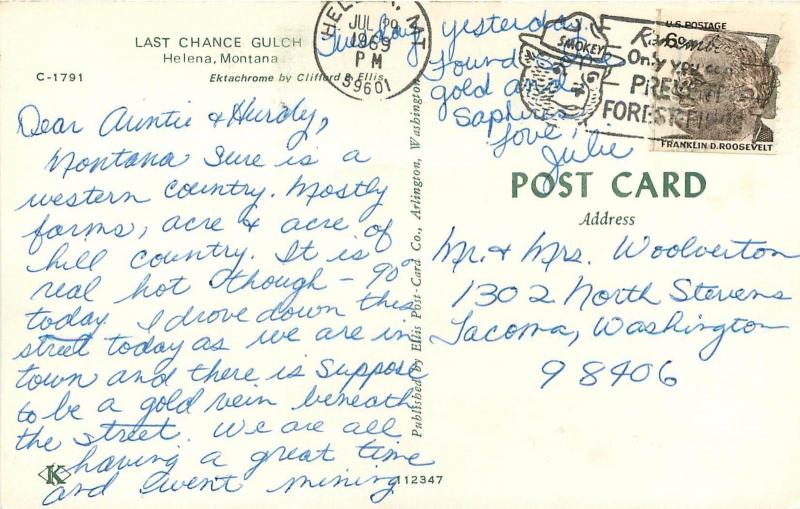 LAST CHANCE GULCH
Helena, Montana
C-1791
Ektachrome by Clifford B. Ellis
HELENA, MT
JUL 29
1969
PM
59601
Tuesday
Dear Auntie & Hurdy,
Montana sure is a
western country. Mostly
farms, acre & acre of
hill country. It is
real hot though - 90°
today. I drove down this
street today as we are in
town and there is suppose
to be a gold vein beneath
the street. We are all
having a great time
and went mining
yesterday.
Found some
gold and
Saphires.
Love,
Julie
Published by Ellis Post-Card Co., Arlington, Washington
K
112347
SMOKEY
Remember
Only you can
PREVENT
FOREST FIRES
U.S. POSTAGE
6c
FRANKLIN D. ROOSEVELT
POST CARD
Address
Mr. & Mrs. Woolverton
1302 North Stevens
Tacoma, Washington
98406